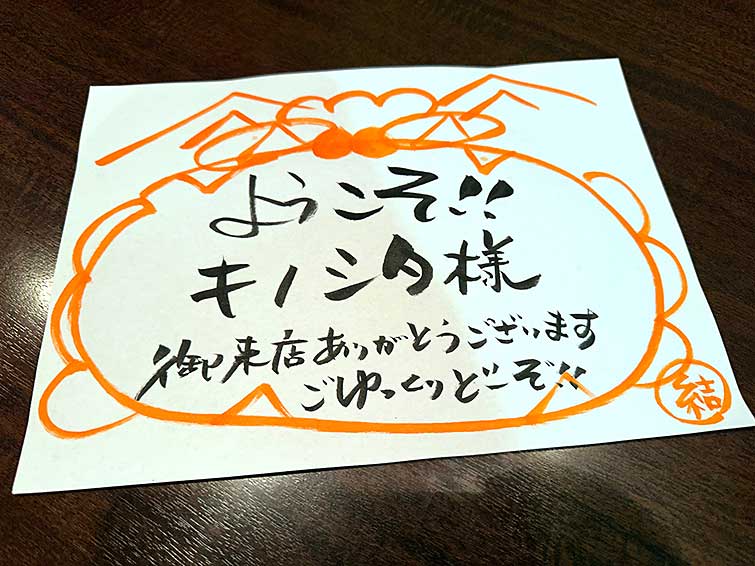 ようこそ!!
キノシタ様
御来店ありがとうございます
ごゆっくりどーぞ!!
結